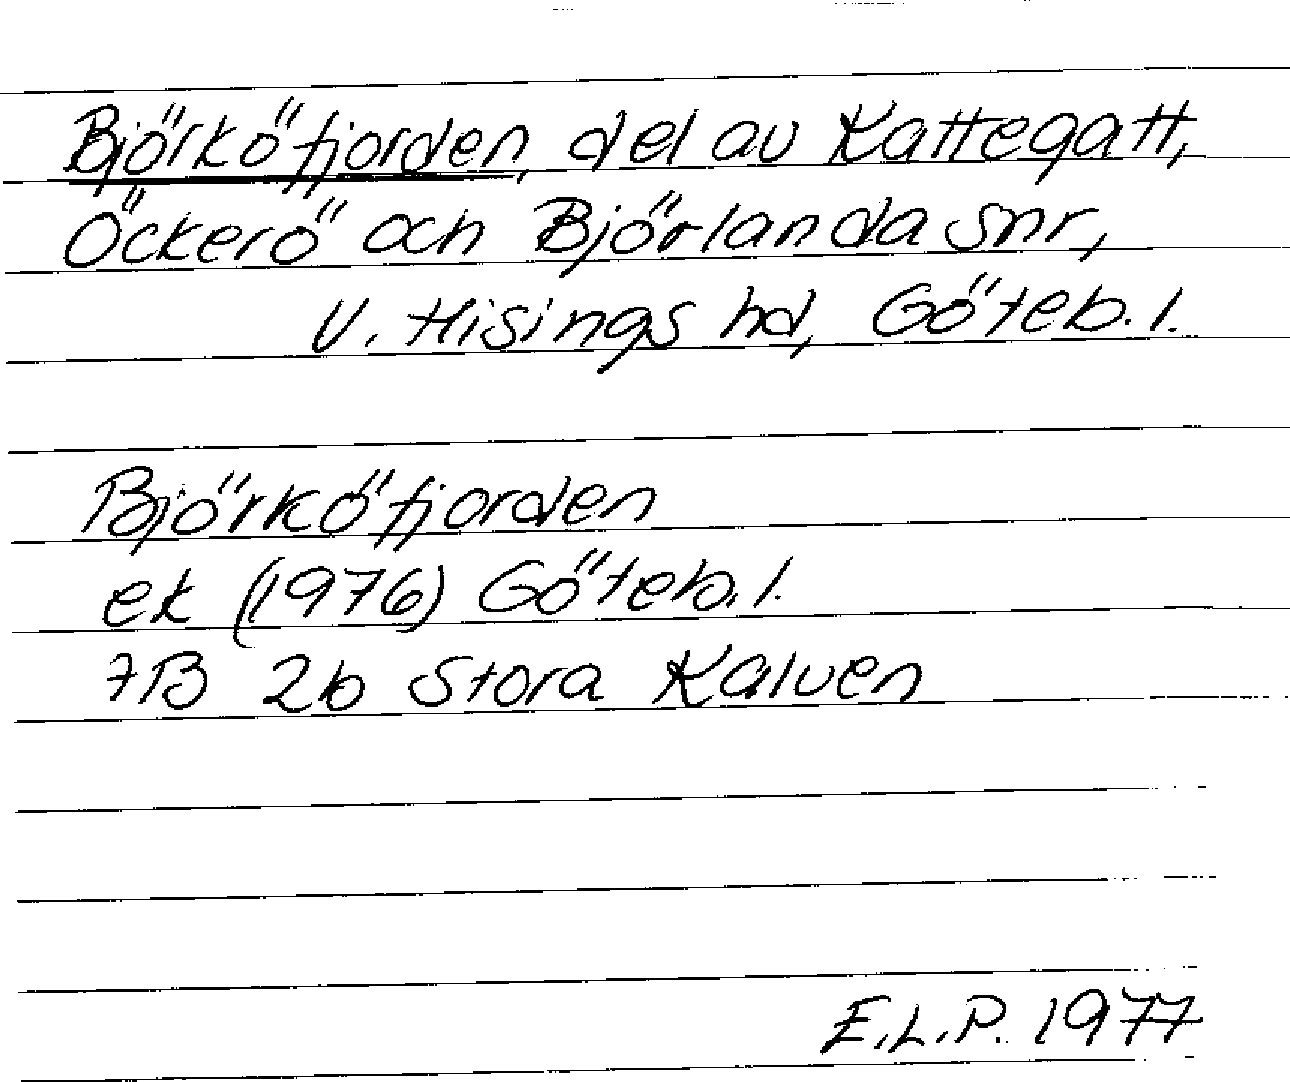 Björköfjorden, del av Kattegatt,
Öckerö och Björlanda snr,
V. Hisings hd, Göteb. l.
Björköfjorden
ek (1976) Göteb. l.
7B 2b Stora Kalven
E.L.P. 1977